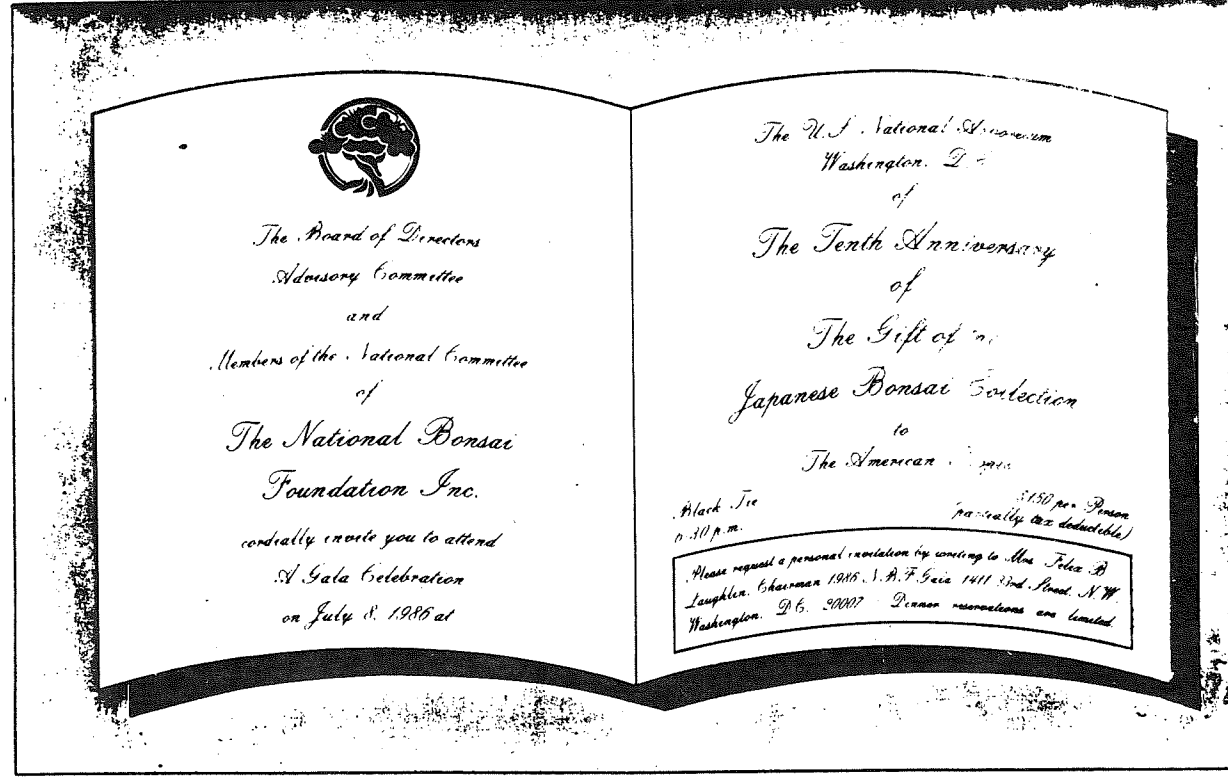 The Board of Directors
Advisory Committee
and
Members of the National Committee
of
The National Bonsai
Foundation Inc.
cordially invite you to attend
A Gala Celebration
on July 8, 1986 at
The U.S. National Arboretum
Washington, D.C.
of
The Tenth Anniversary
of
The Gift of the
Japanese Bonsai Collection
to
The American
Black Tie
30 p.m.
$150 per Person
(partially tax deductible)
Please request a personal invitation by writing to Mrs Felix B
Laughlin, Chairman 1986 N.B.F. Gala 1411 33rd Street, N.W.
Washington, D.C. 20007 Dinner reservations are limited.